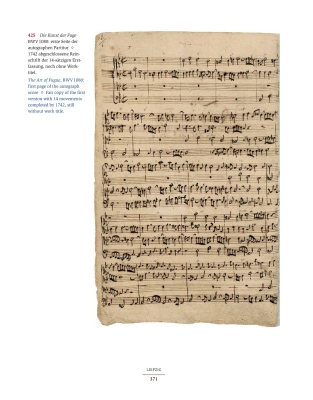 425 Die Kunst der Fuge
BWV 1080: erste Seite der
autographen Partitur ◊
1742 abgeschlossene Rein-
schrift der 14-sätzigen Erst-
fassung, noch ohne Werk-
titel.
The Art of Fugue, BWV 1080:
first page of the autograph
score ◊ Fair copy of the first
version with 14 movements
completed by 1742, still
without work title.
LEIPZIG
371